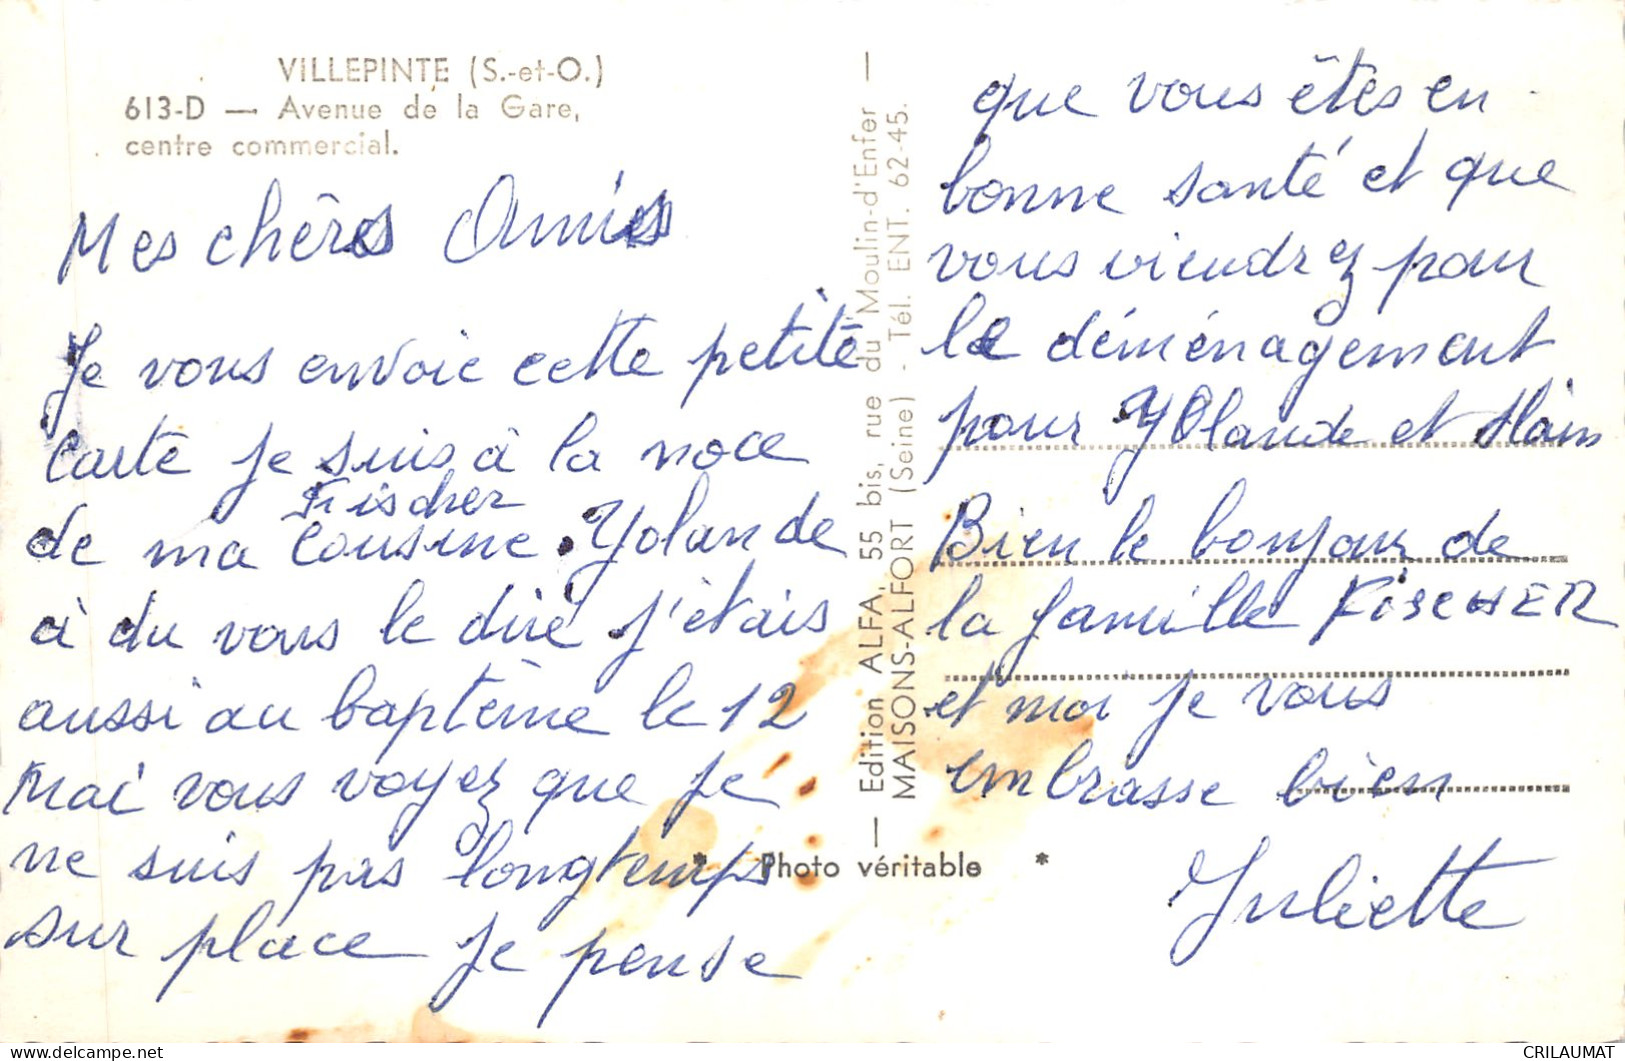 VILLEPINTE (S.-et-O.)
613-D — Avenue de la Gare,
centre commercial.
Mes chères Amies
Je vous envoie cette petite
carte je suis à la noce
Fischer
de ma cousine. Yolande
à du vous le dire j'étais
aussi au baptème le 12
Mai vous voyez que je
ne suis pas longtemps
sur place je pense
— Edition ALFA, 55 bis, rue du Moulin-d'Enfer —
MAISONS-ALFORT (Seine) - Tél. ENT. 62-45.
* Photo véritable *
que vous êtes en
bonne santé et que
vous viendrez pour
le déménagement
pour Yolande et Alain
Bien le bonjour de
la famille FiscHER
et moi je vous
embrasse bien
Juliette
CRILAUMAT